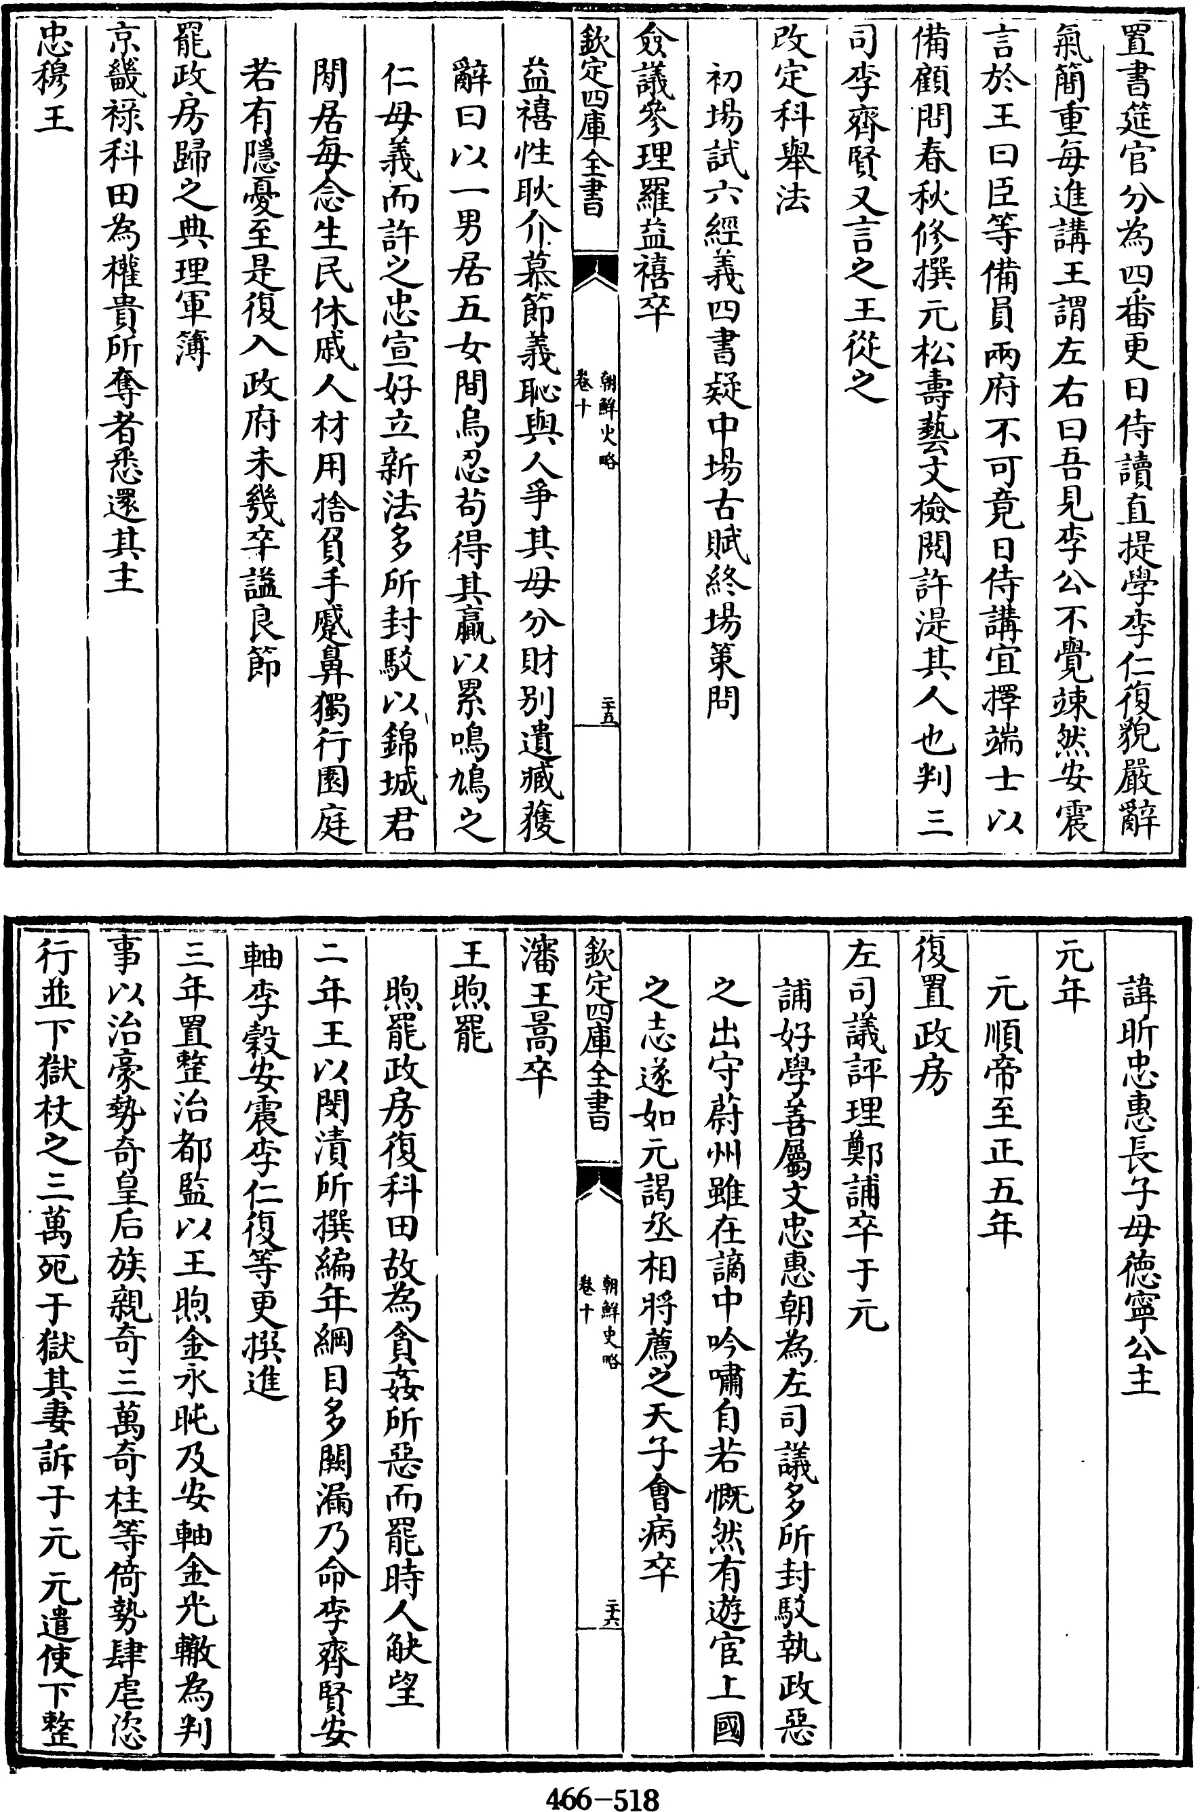 置書筵官分為四番更日侍讀直提學李仁復貌嚴辭
氣簡重每進講王謂左右曰吾見李公不覺竦然安震
言於王曰臣等備員兩府不可竟日侍講宜擇端士以
備顧問春秋修撰元松壽藝文檢閱許湜其人也判三
司李齊賢又言之王從之
改定科舉法
初場試六經義四書疑中場古賦終場策問
僉議參理羅益禧卒
欽定四庫全書
朝鮮史略
卷十
二十五
益禧性耿介慕節義恥與人爭其母分財別遺臧獲
辭曰以一男居五女間烏忍苟得其贏以累鳴鳩之
仁母義而許之忠宣好立新法多所封駁以錦城君
閒居每念生民休戚人材用捨負手蹙鼻獨行園庭
若有隱憂至是復入政府未幾卒諡良節
罷政房歸之典理軍簿
京畿祿科田為權貴所奪者悉還其主
忠穆王
諱昕忠惠長子母德寧公主
元年
元順帝至正五年
復置政房
左司議評理鄭誧卒于元
誧好學善屬文忠惠朝為左司議多所封駁執政惡
之出守蔚州雖在謫中吟嘯自若慨然有遊宦上國
之志遂如元謁丞相將薦之天子會病卒
瀋王暠卒
欽定四庫全書
朝鮮史略
卷十
二十六
王煦罷
煦罷政房復科田故為貪姦所惡而罷時人觖望
二年王以閔漬所撰編年綱目多闕漏乃命李齊賢安
軸李穀安震李仁復等更撰進
三年置整治都監以王煦金永旽及安軸金光轍為判
事以治豪勢奇皇后族親奇三萬奇柱等倚勢肆虐恣
行並下獄杖之三萬死于獄其妻訴于元元遣使下整
466-518